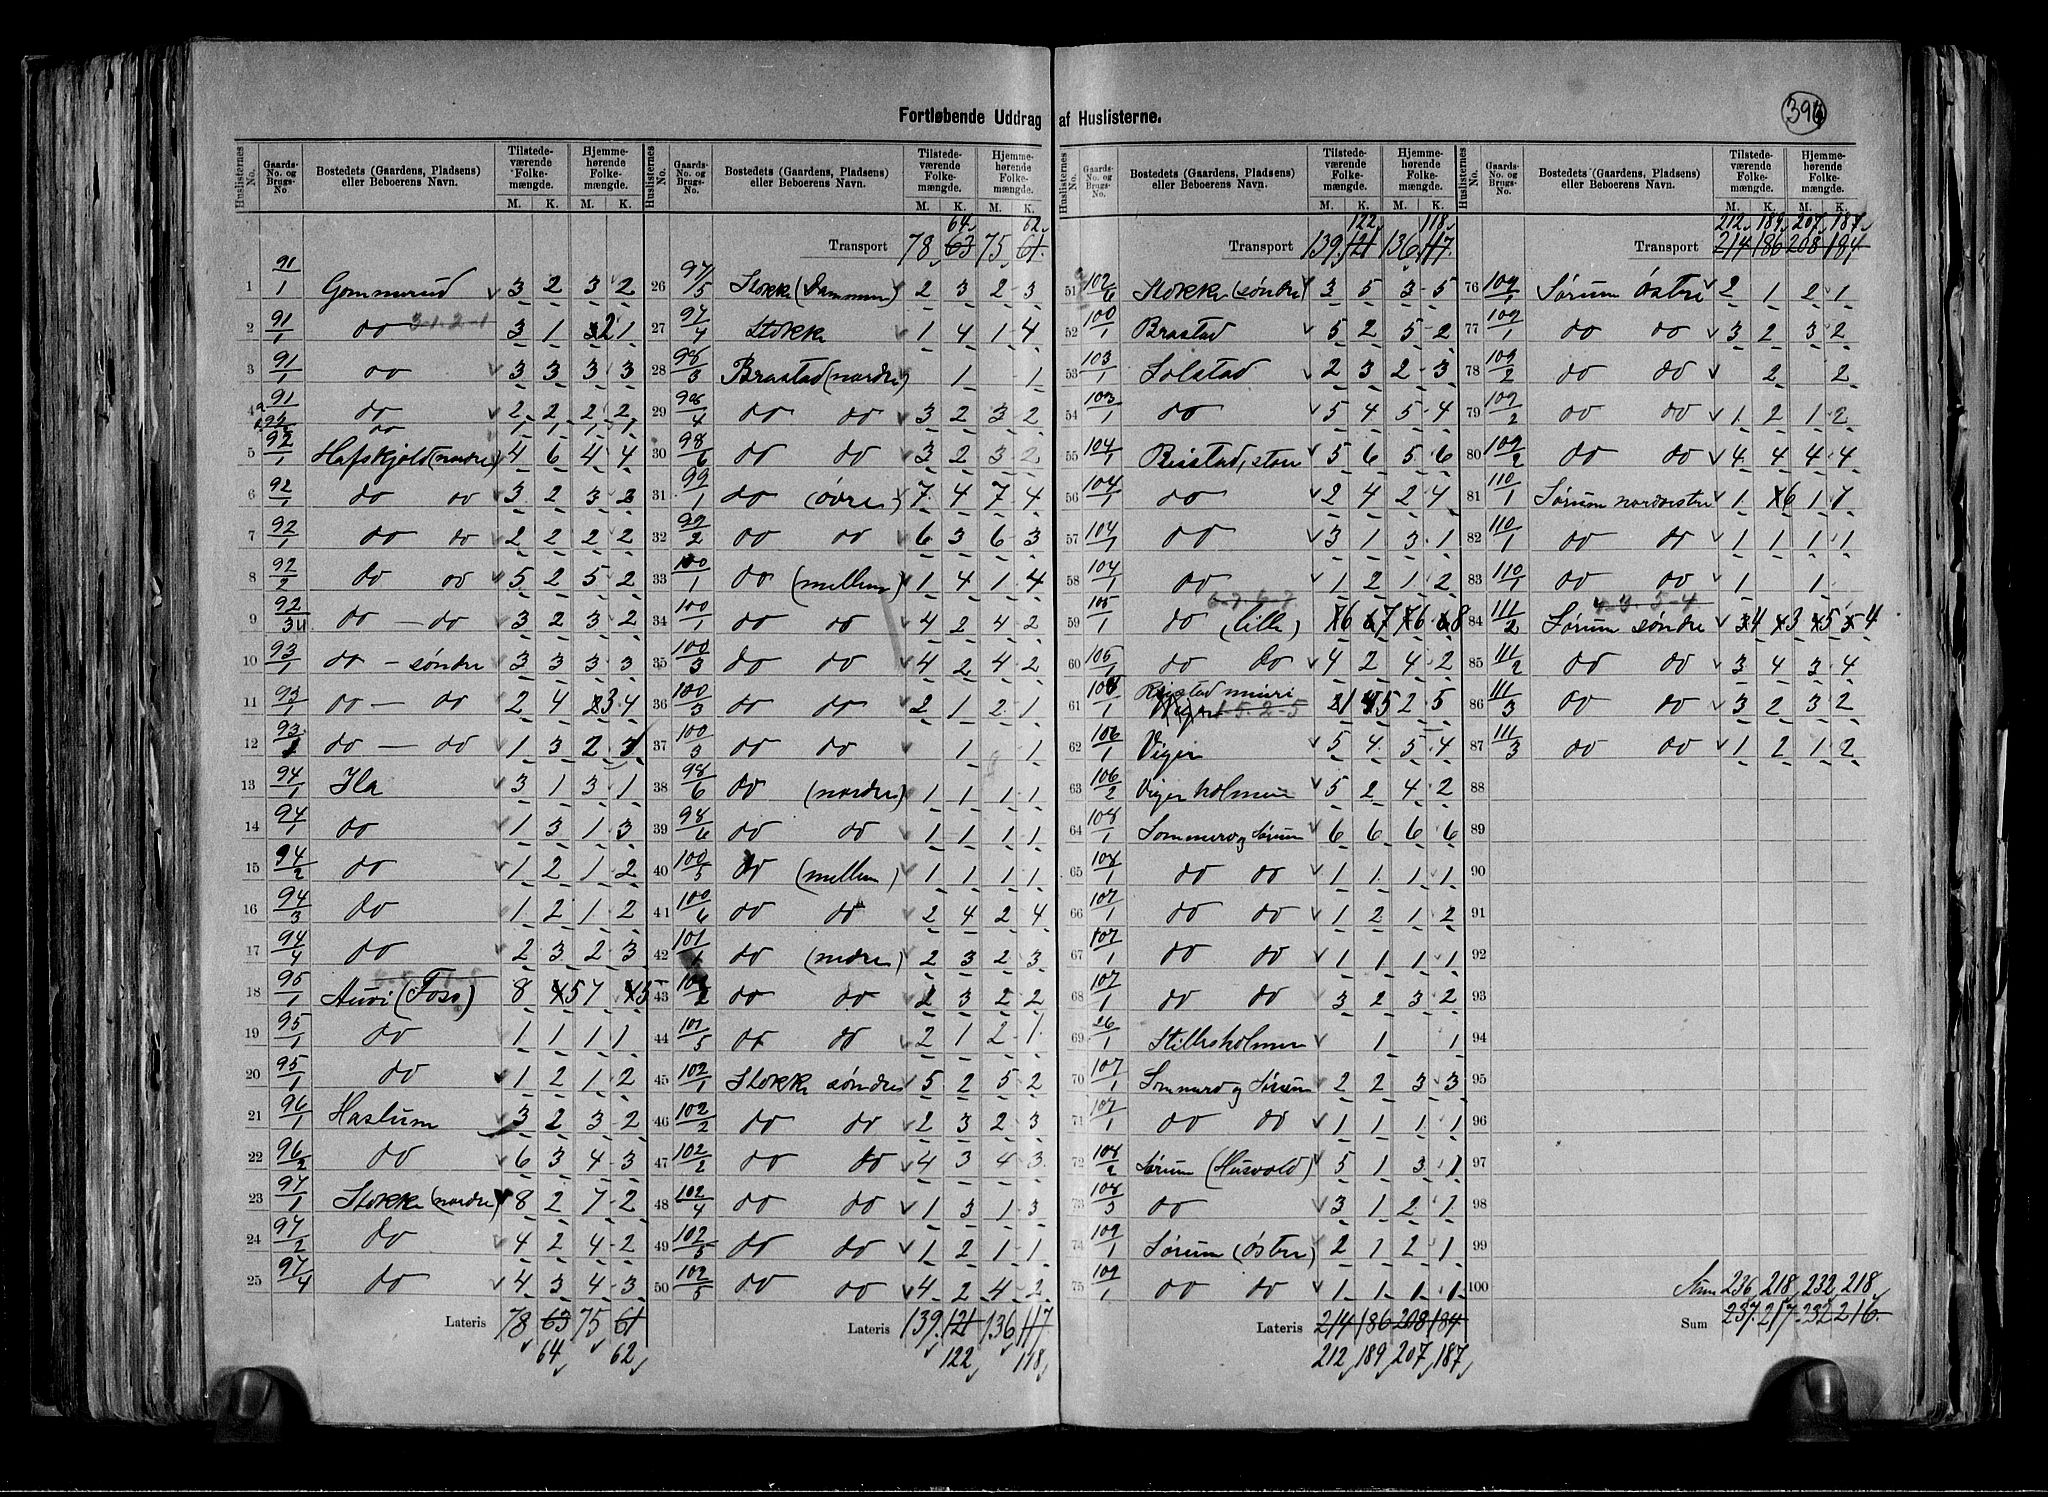 394
Fortløbende Uddrag af Huslisterne.
Huslisternes No. Gaards-No. og Brugs-No. Bostedets (Gaardens, Pladsens) eller Beboerens Navn. Tilstede-værende Folke-mængde. Hjemme-hørende Folke-mængde.
M. K. M. K.
1 91/1 Gommerud 3 2 3 2
2 91/1 do 3-1.2-1 3 1 2 1
3 91/1 do 3 3 3 3
4 91/1 do 2 2 2 2
do 1 1 1 1
5 92/1 Hafskjold (nordre) 4 6 4 4
6 92/1 do do 3 2 3 2
7 92/1 do do 2 2 2 2
8 92/2 do do 5 2 5 2
9 92/34 do - do 3 2 3 2
10 93/1 do - søndre 3 3 3 3
11 93/1 do - do 2 4 3 4
12 93/1 do - do 1 3 2 3
13 94/1 Ila 3 1 3 1
14 94/1 do 1 3 1 3
15 94/2 do 1 2 1 2
16 94/3 do 1 2 1 2
17 94/4 do 2 3 2 3
18 95/1 Auvi (Foss) 8 5 7 5
19 95/1 do 1 1 1 1
20 95/1 do 1 2 1 2
21 96/1 Haslum 3 2 3 2
22 96/2 do 6 3 4 3
23 97/1 Stokke (nordre) 8 2 7 2
24 97/2 do 4 2 4 2
25 97/4 do 4 3 4 3
Lateris 78 63 75 61
64 62
Huslisternes No. Gaards-No. og Brugs-No. Bostedets (Gaardens, Pladsens) eller Beboerens Navn. Tilstede-værende Folke-mængde. Hjemme-hørende Folke-mængde.
M. K. M. K.
64 62
Transport 78 63 75 61
26 97/5 Stokke (Dammen) 2 3 2 3
27 97/4 Stokke 1 4 1 4
28 98/3 Brastad (nordre) 1 1
29 98/4 do do 3 2 3 2
30 98/6 do do 3 2 3 2
31 99/1 do (øvre) 7 4 7 4
32 99/2 do do 6 3 6 3
33 100/1 do (mellem) 1 4 1 4
34 100/1 do do 4 2 4 2
35 100/3 do do 4 2 4 2
36 100/3 do do 2 1 2 1
37 100/3 do do 1 1
38 98/6 do (nordre) 1 1 1 1
39 98/6 do do 1 1 1 1
40 100/5 do (mellem) 1 1 1 1
41 100/6 do do 2 4 2 4
42 101/1 do (nedre) 2 3 2 3
43 do do 2 3 2 2
44 101/5 do do 2 1 2 1
45 102/1 Stokke søndre 5 2 5 2
46 102/2 do do 2 3 2 3
47 102/2 do do 4 3 4 3
48 102/4 do do 1 3 1 3
49 102/5 do do 1 2 1 1
50 102/5 do do 4 2 4 2
Lateris 139 121 136 117
122 118
Huslisternes No. Gaards-No. og Brugs-No. Bostedets (Gaardens, Pladsens) eller Beboerens Navn. Tilstede-værende Folke-mængde. Hjemme-hørende Folke-mængde.
M. K. M. K.
122 118
Transport 139 121 136 117
51 102/6 Stokke (søndre) 3 5 3 5
52 100/1 Brastad 5 2 5 2
53 103/1 Solstad 2 3 2 3
54 103/1 do 5 4 5 4
55 104/1 Risstad, store 5 6 5 6
56 104/1 do 2 4 2 4
57 104/1 do 3 1 3 1
58 104/1 do 1 2 1 2
59 105/1 do (lille) 6 7 6 8
60 105/1 do do 4 2 4 2
61 1-5.2-5 1 5 2 5
62 106/1 Viger 5 4 5 4
63 106/2 Viger holmen 5 2 4 2
64 108/1 Sommero og Sørum 6 6 6 6
65 108/1 do do 1 1 1 1
66 107/1 do do 1 2 1 2
67 107/1 do do 1 1 1 1
68 107/1 do do 3 2 3 2
69 26/1 Stillesholmen 1 1
70 107/1 Sommero og Sørum 2 2 3 3
71 107/1 do do 1 1 1 1
72 108/2 Sørum (Husvold) 5 1 3 1
73 108/3 do 3 1 2 1
74 109/1 Sørum (østre) 2 1 2 1
75 109/1 do do 1 1 1 1
Lateris 214 186 208 184
212 189 207 187
Huslisternes No. Gaards-No. og Brugs-No. Bostedets (Gaardens, Pladsens) eller Beboerens Navn. Tilstede-værende Folke-mængde. Hjemme-hørende Folke-mængde.
M. K. M. K.
212 189 207 187
Transport 214 186 208 184
76 109/1 Sørum østre 2 1 2 1
77 109/1 do do 3 2 3 2
78 109/2 do do 2 2
79 109/2 do do 1 2 1 2
80 109/2 do do 4 4 4 4
81 110/1 Sørum nordvestre 1 6 1 7
82 110/1 do do 1 1 1 1
83 110/1 do do 1 1
4-3.5-4
84 111/2 Sørum søndre 4 3 5 4
85 111/2 do do 3 4 3 4
86 111/3 do do 3 2 3 2
87 111/3 do do 1 2 1 2
88
89
90
91
92
93
94
95
96
97
98
99
100
Sum 236 218 232 218
Sum 237 217 232 216